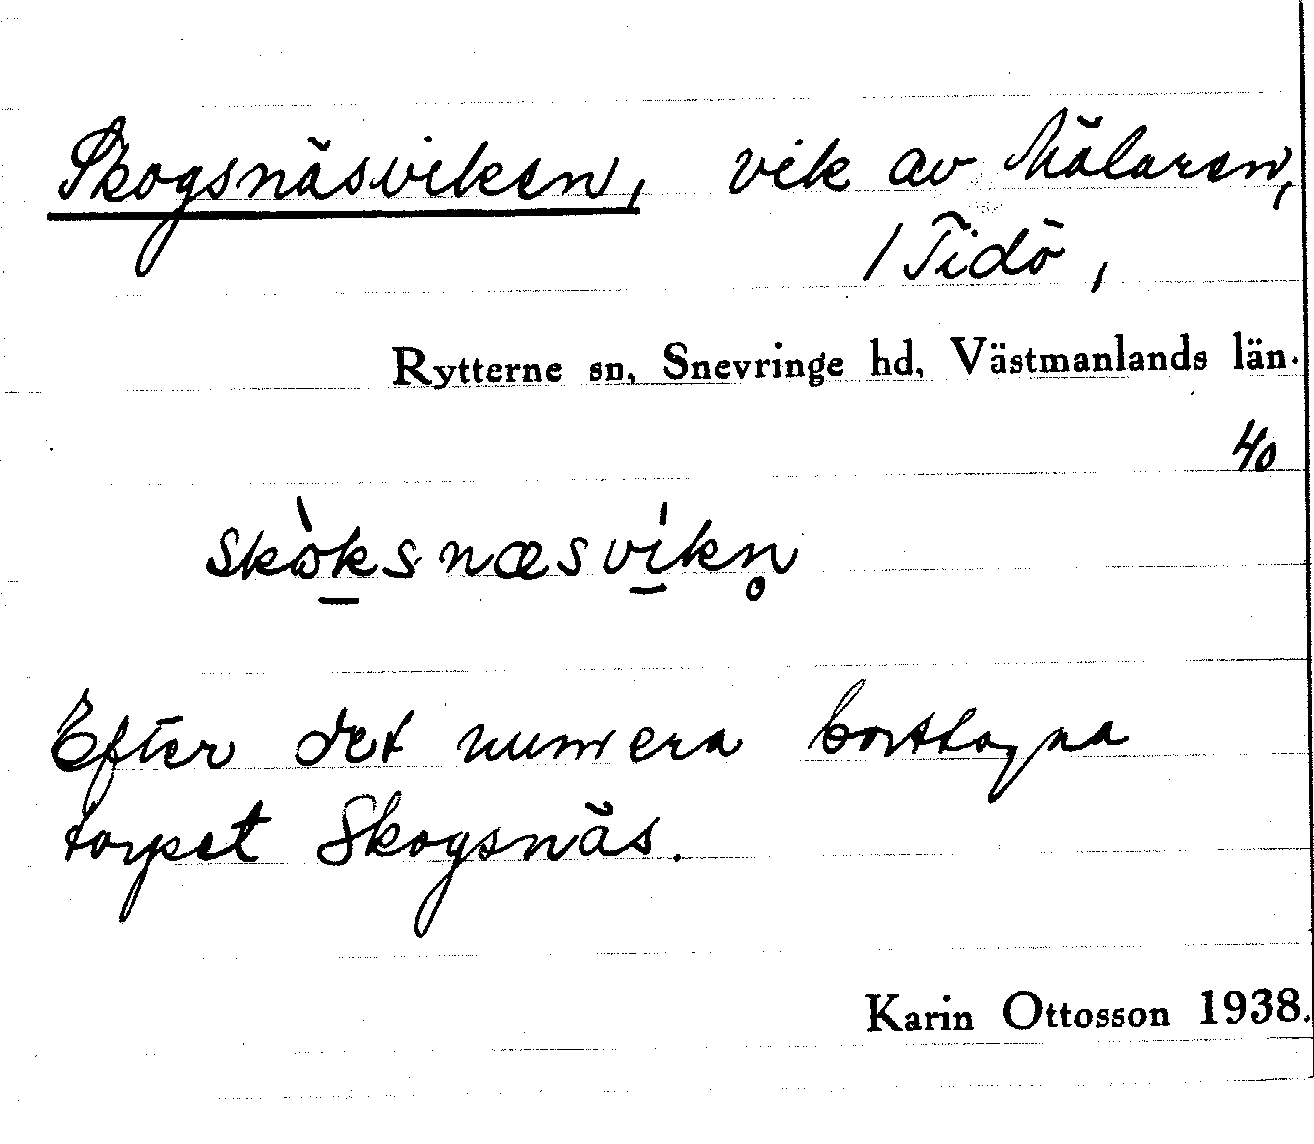 Skogsnäsviken, vik av Mälaren,
/ Tidö,
Rytterne sn, Snevringe hd, Västmanlands län.
40
skòksnæsvíkn̥
Efter det numera borttagna
torpet Skogsnäs.
Karin Ottosson 1938.